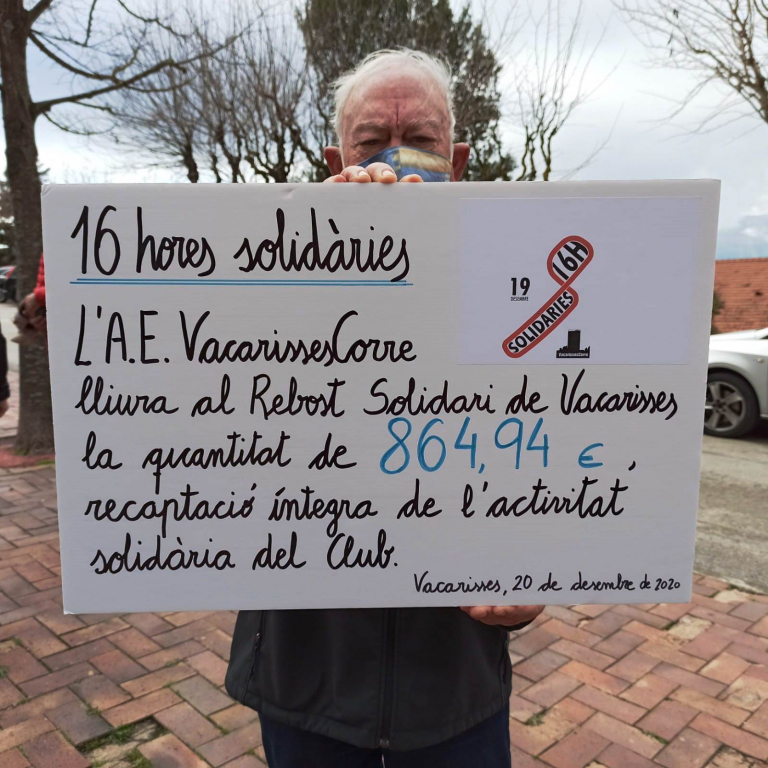 16 hores solidàries
19
DESEMBRE
16H
SOLIDARIES
VacarissesCorre
L'A.E. VacarissesCorre
lliura al Rebost Solidari de Vacarisses
la quantitat de 864,94 €,
recaptació íntegra de l'activitat
solidària del Club.
Vacarisses, 20 de desembre de 2020